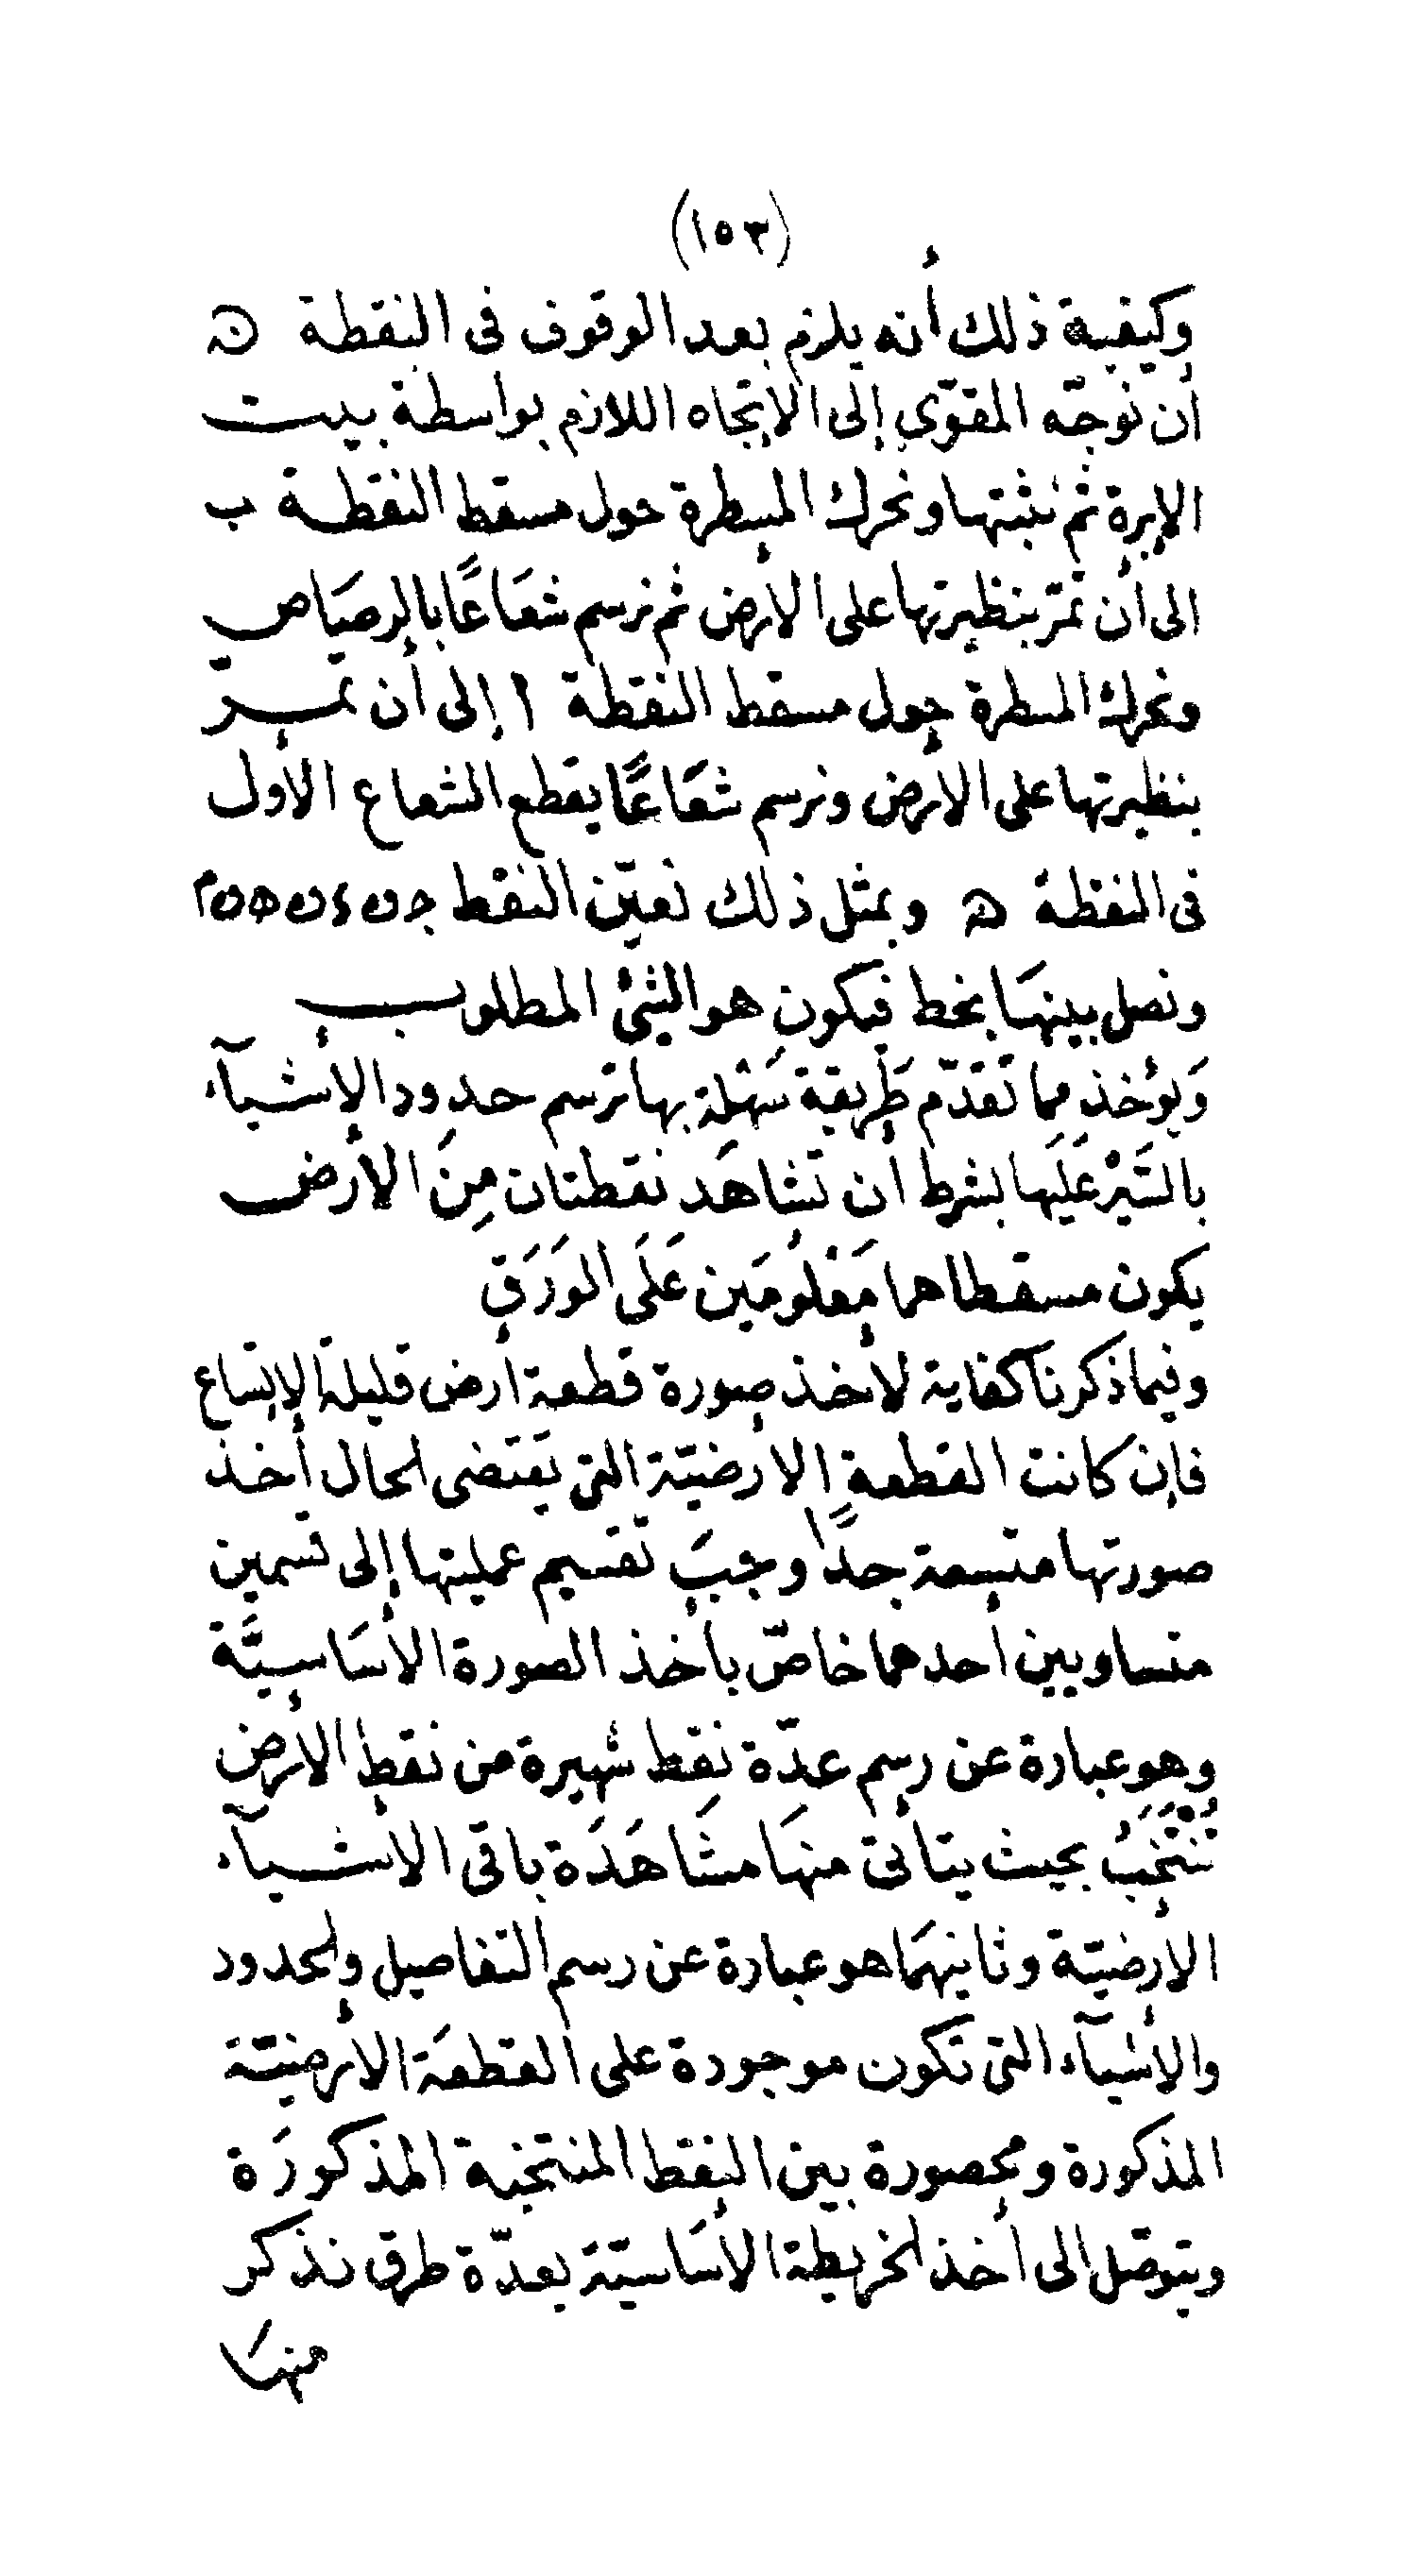 (١٥٣)
وكيفية ذلك أنه يلزم بعد الوقوف فى النقطة ھ
أن نوجّه المقوّى إلى الاتجاه اللازم بواسطة بيت
الإبرة ثم نثبتها ونحرك المسطرة حول مسقط النقطة ب
الى أن تمرّ بنظيرتها على الأرض ثم نرسم شعَاعًا بالرصَاص
ونحرك المسطرة حول مسقط النقطة ا إلى أن تمــرّ
بنظيرتها على الأرض ونرسم شعَاعًا يقطع الشعاع الأول
فى النقطة ھ وبمثل ذلك نعيّن النقط
ونصل بينهَا بخط فيكون هو الشئ المطلوب
وَيؤخذ مما تقدّم طَريقة سَهْلة بها ترسم حدود الأشيآء
بالسَّيْر عَلَيها بشرط أن تشاهَد نقطتان مِنَ الأرض
يكون مسقطاهما مَعْلُومَين عَلَى الوَرَقِ
وفيما ذكرنا كفاية لأخذ صورة قطعة ارض قليلة الاتساع
فإن كانت القطعة الارضيّة التى يقتضى الحال أخذ
صورتها متسعة جدًّا وجبَ تقسيم عمليتها إلى قسمين
متساويين أحدهما خاصّ بأخذ الصورة الأسَاسِيَّة
وهو عبارة عن رسم عدّة نقط شهيرة من نقط الأرض
تُنْتَخَبُ بحيث يتأتى منهَا مشَاهَدَة باقى الأشيآء
الأرضيّة وثانيهمَا هو عبارة عن رسم التفاصيل والحدود
والأشيآء التى تكون موجودة على القطعَة الأرضيّة
المذكورة ومحصورة بين النقط المنتخبة المذكورَة
ويتوصّل الى أخذ الخريطة الأسَاسيّة بعدّة طرق نذكر
منهَا